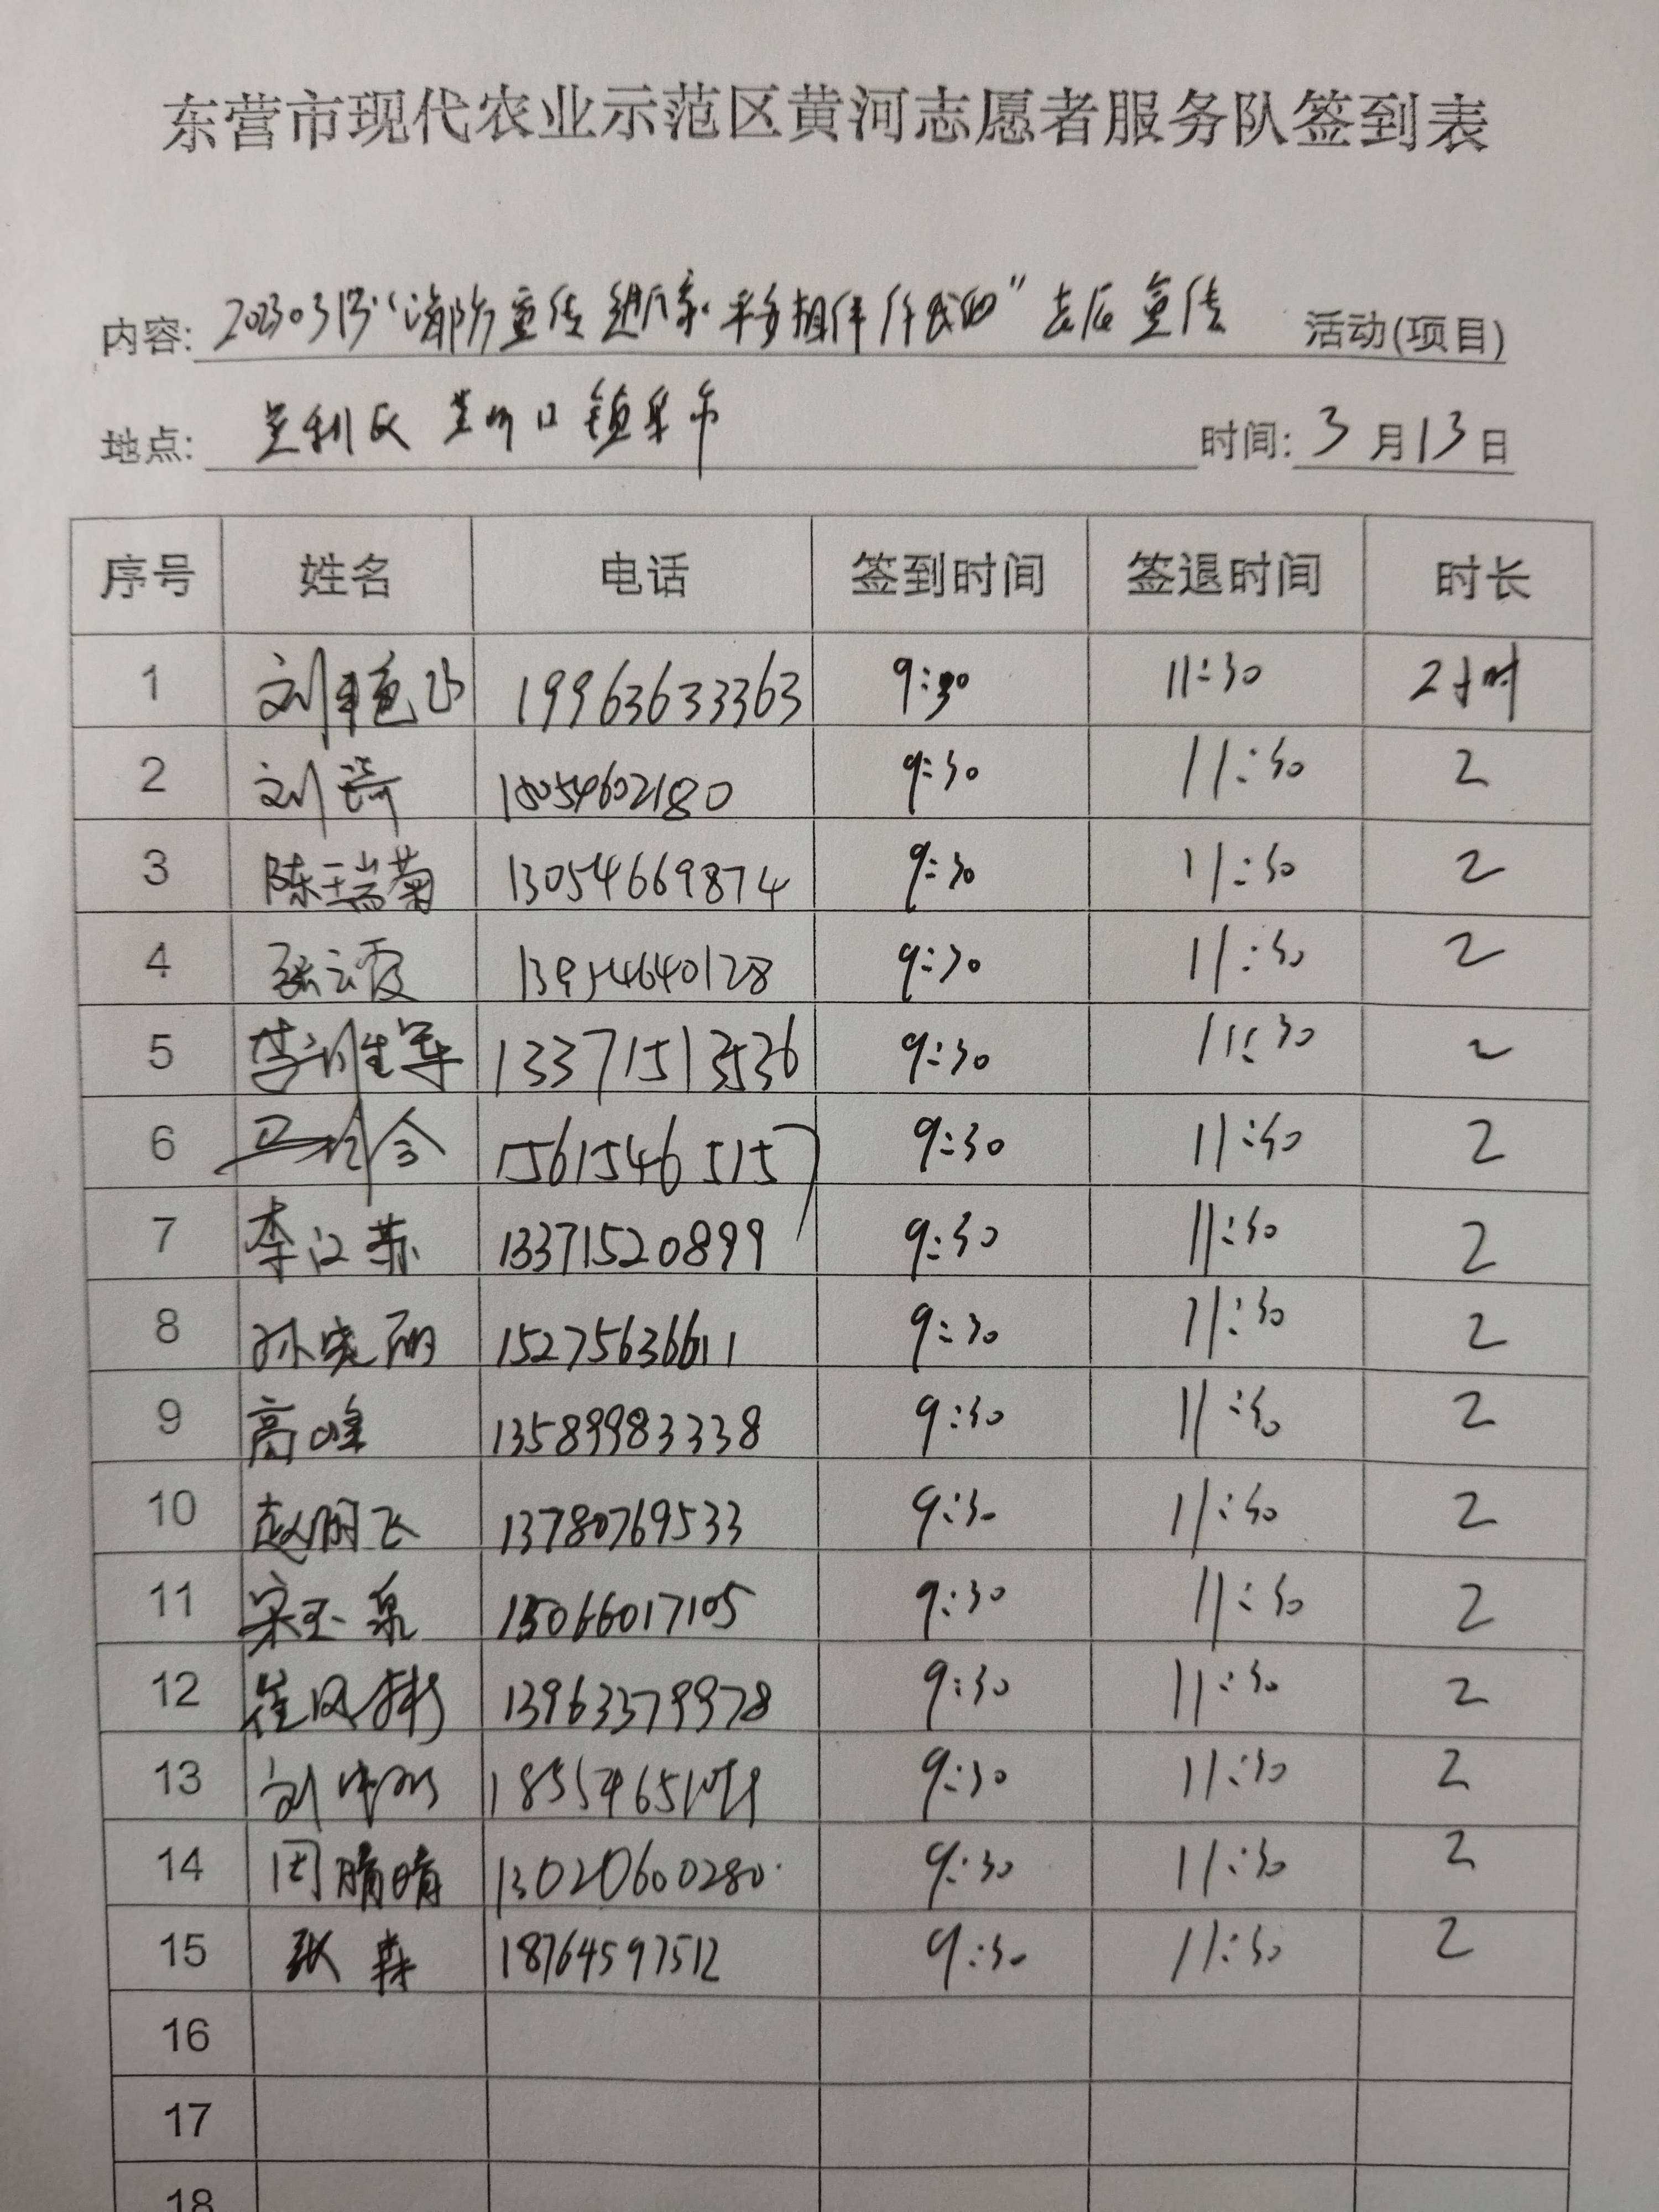 东营市现代农业示范区黄河志愿者服务队签到表
内容: 20230313"消防宣传进万家·平安相伴你我他" 志愿宣传 活动(项目)
地点: 垦利区 垦利口镇集市 时间: 3月13日
序号 姓名 电话 签到时间 签退时间 时长
1 刘 19963633363 9:30 11:30 2小时
2 刘琦 18054602180 9:30 11:30 2
3 陈瑞菊 13054669874 9:30 11:30 2
4 张云霞 13954640128 9:30 11:30 2
5 李 军 13371513536 9:30 11:30 2
6 15615465157 9:30 11:30 2
7 李江苏 13371520899 9:30 11:30 2
8 孙晓丽 15275636611 9:30 11:30 2
9 高峰 13589983338 9:30 11:30 2
10 赵鹏飞 13780769533 9:30 11:30 2
11 宋玉泉 15066017105 9:30 11:30 2
12 崔凤彬 13963379978 9:30 11:30 2
13 刘 9:30 11:30 2
14 周晴晴 13020600280 9:30 11:30 2
15 张森 18764597512 9:30 11:30 2
16
17
18